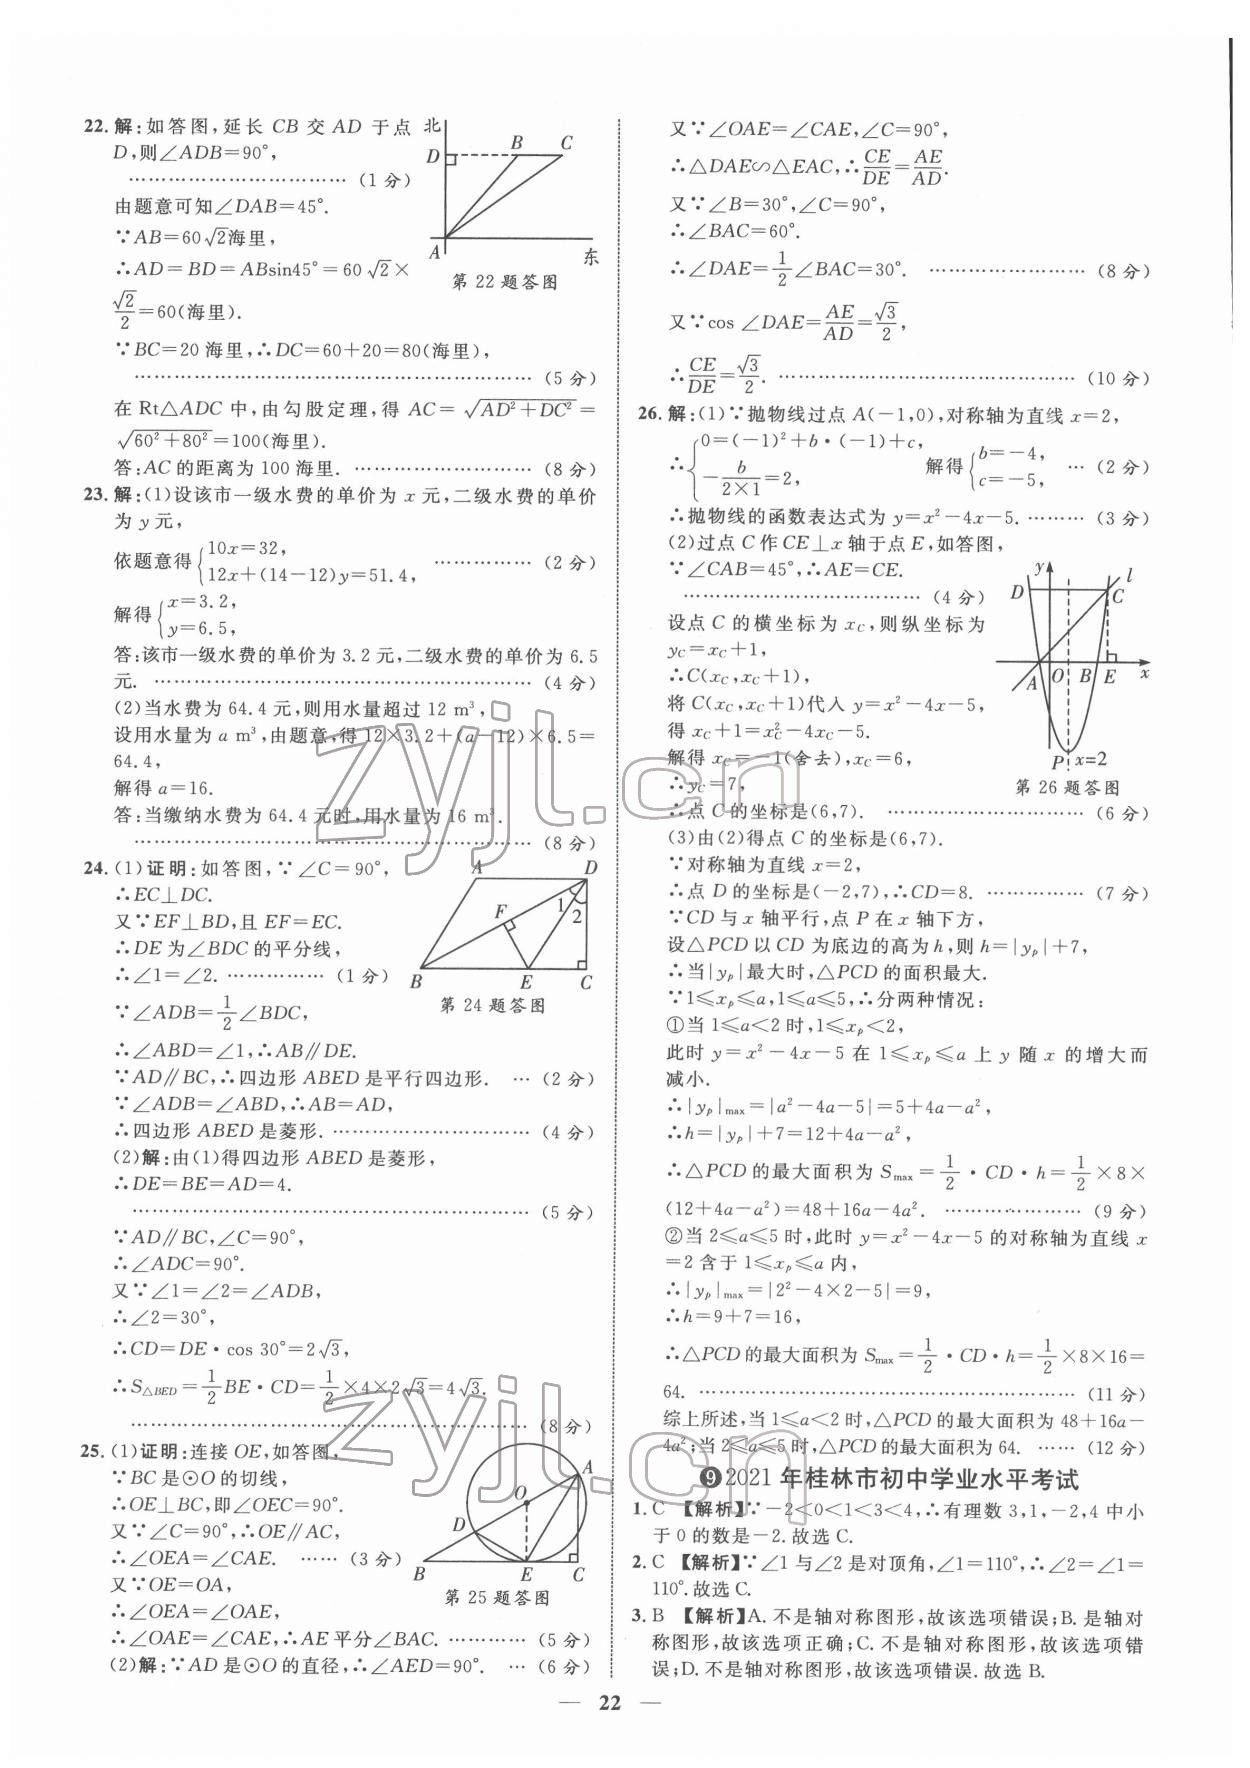 22. 解:如答图,延长 CB 交 AD 于点
D,则∠ADB=90°,
…………………………… (1 分)
由题意可知∠DAB=45°.
∵AB=60√2海里,
∴AD=BD=ABsin45°=60√2×
√2/2=60(海里).
∵BC=20 海里,∴DC=60+20=80(海里),
…………………………………………………… (5 分)
在 Rt△ADC 中,由勾股定理,得 AC=√(AD²+DC²)=
√(60²+80²)=100(海里).
答:AC 的距离为 100 海里. ………………… (8 分)
北
D
B
C
A
东
第 22 题答图
23. 解:(1)设该市一级水费的单价为 x 元,二级水费的单价
为 y 元,
依题意得{10x=32,
12x+(14-12)y=51.4, …………… (2 分)
解得{x=3.2,
y=6.5,
答:该市一级水费的单价为 3.2 元,二级水费的单价为 6.5
元. ………………………………………………… (4 分)
(2)当水费为 64.4 元,则用水量超过 12 m³,
设用水量为 a m³,由题意,得 12×3.2+(a-12)×6.5=
64.4,
解得 a=16.
答:当缴纳水费为 64.4 元时,用水量为 16 m³.
…………………………………………………… (8 分)
24. (1)证明:如答图,∵∠C=90°,
∴EC⊥DC.
又∵EF⊥BD,且 EF=EC.
∴DE 为∠BDC 的平分线,
∴∠1=∠2. …………… (1 分)
∵∠ADB=1/2∠BDC,
∴∠ABD=∠1,∴AB∥DE.
∵AD∥BC,∴四边形 ABED 是平行四边形. … (2 分)
∵∠ADB=∠ABD,∴AB=AD,
∴四边形 ABED 是菱形. ………………………… (4 分)
A
D
F
1
2
B
E
C
第 24 题答图
(2)解:由(1)得四边形 ABED 是菱形,
∴DE=BE=AD=4.
…………………………………………………… (5 分)
∵AD∥BC,∠C=90°,
∴∠ADC=90°.
又∵∠1=∠2=∠ADB,
∴∠2=30°,
∴CD=DE·cos 30°=2√3,
∴S△BED=1/2BE·CD=1/2×4×2√3=4√3.
…………………………………………………… (8 分)
25. (1)证明:连接 OE,如答图,
∵BC 是⊙O 的切线,
∴OE⊥BC,即∠OEC=90°.
又∵∠C=90°,∴OE∥AC,
∴∠OEA=∠CAE. …… (3 分)
又∵OE=OA,
∴∠OEA=∠OAE,
∴∠OAE=∠CAE,∴AE 平分∠BAC. ………… (5 分)
(2)解:∵AD 是⊙O 的直径,∴∠AED=90°. … (6 分)
A
O
D
B
E
C
第 25 题答图
又∵∠OAE=∠CAE,∠C=90°,
∴△DAE∽△EAC,∴CE/DE=AE/AD.
又∵∠B=30°,∠C=90°,
∴∠BAC=60°.
∴∠DAE=1/2∠BAC=30°. …………………… (8 分)
又∵cos∠DAE=AE/AD=√3/2,
∴CE/DE=√3/2. ……………………………………… (10 分)
26. 解:(1)∵抛物线过点 A(-1,0),对称轴为直线 x=2,
∴{0=(-1)²+b·(-1)+c,
-b/(2×1)=2, 解得{b=-4,
c=-5, … (2 分)
∴抛物线的函数表达式为 y=x²-4x-5. ……… (3 分)
(2)过点 C 作 CE⊥x 轴于点 E,如答图,
∵∠CAB=45°,∴AE=CE.
…………………………… (4 分)
设点 C 的横坐标为 x_C,则纵坐标为
y_C=x_C+1,
∴C(x_C,x_C+1),
将 C(x_C,x_C+1)代入 y=x²-4x-5,
得 x_C+1=x_C²-4x_C-5.
解得 x_C=-1(舍去),x_C=6,
∴y_C=7,
∴点 C 的坐标是(6,7). ………………………… (6 分)
y
l
D
C
A
O
B
E
x
P
x=2
第 26 题答图
(3)由(2)得点 C 的坐标是(6,7).
∵对称轴为直线 x=2,
∴点 D 的坐标是(-2,7),∴CD=8. …………… (7 分)
∵CD 与 x 轴平行,点 P 在 x 轴下方,
设△PCD 以 CD 为底边的高为 h,则 h=|y_p|+7,
∴当|y_p|最大时,△PCD 的面积最大.
∵1≤x_p≤a,1≤a≤5,∴分两种情况:
①当 1≤a<2 时,1≤x_p<2,
此时 y=x²-4x-5 在 1≤x_p≤a 上 y 随 x 的增大而
减小.
∴|y_p|max=|a²-4a-5|=5+4a-a²,
∴h=|y_p|+7=12+4a-a²,
∴△PCD 的最大面积为 Smax=1/2·CD·h=1/2×8×
(12+4a-a²)=48+16a-4a². ………………… (9 分)
②当 2≤a≤5 时,此时 y=x²-4x-5 的对称轴为直线 x
=2 含于 1≤x_p≤a 内,
∴|y_p|max=|2²-4×2-5|=9,
∴h=9+7=16,
∴△PCD 的最大面积为 Smax=1/2·CD·h=1/2×8×16=
64. ………………………………………………… (11 分)
综上所述,当 1≤a<2 时,△PCD 的最大面积为 48+16a-
4a²;当 2≤a≤5 时,△PCD 的最大面积为 64. …… (12 分)
❾2021 年桂林市初中学业水平考试
1. C 【解析】∵-2<0<1<3<4,∴有理数 3,1,-2,4 中小
于 0 的数是-2.故选 C.
2. C 【解析】∵∠1 与∠2 是对顶角,∠1=110°,∴∠2=∠1=
110°.故选 C.
3. B 【解析】A. 不是轴对称图形,故该选项错误;B. 是轴对
称图形,故该选项正确;C. 不是轴对称图形,故该选项错
误;D. 不是轴对称图形,故该选项错误. 故选 B.
— 22 —
zyjl.cn
zyjl.cn